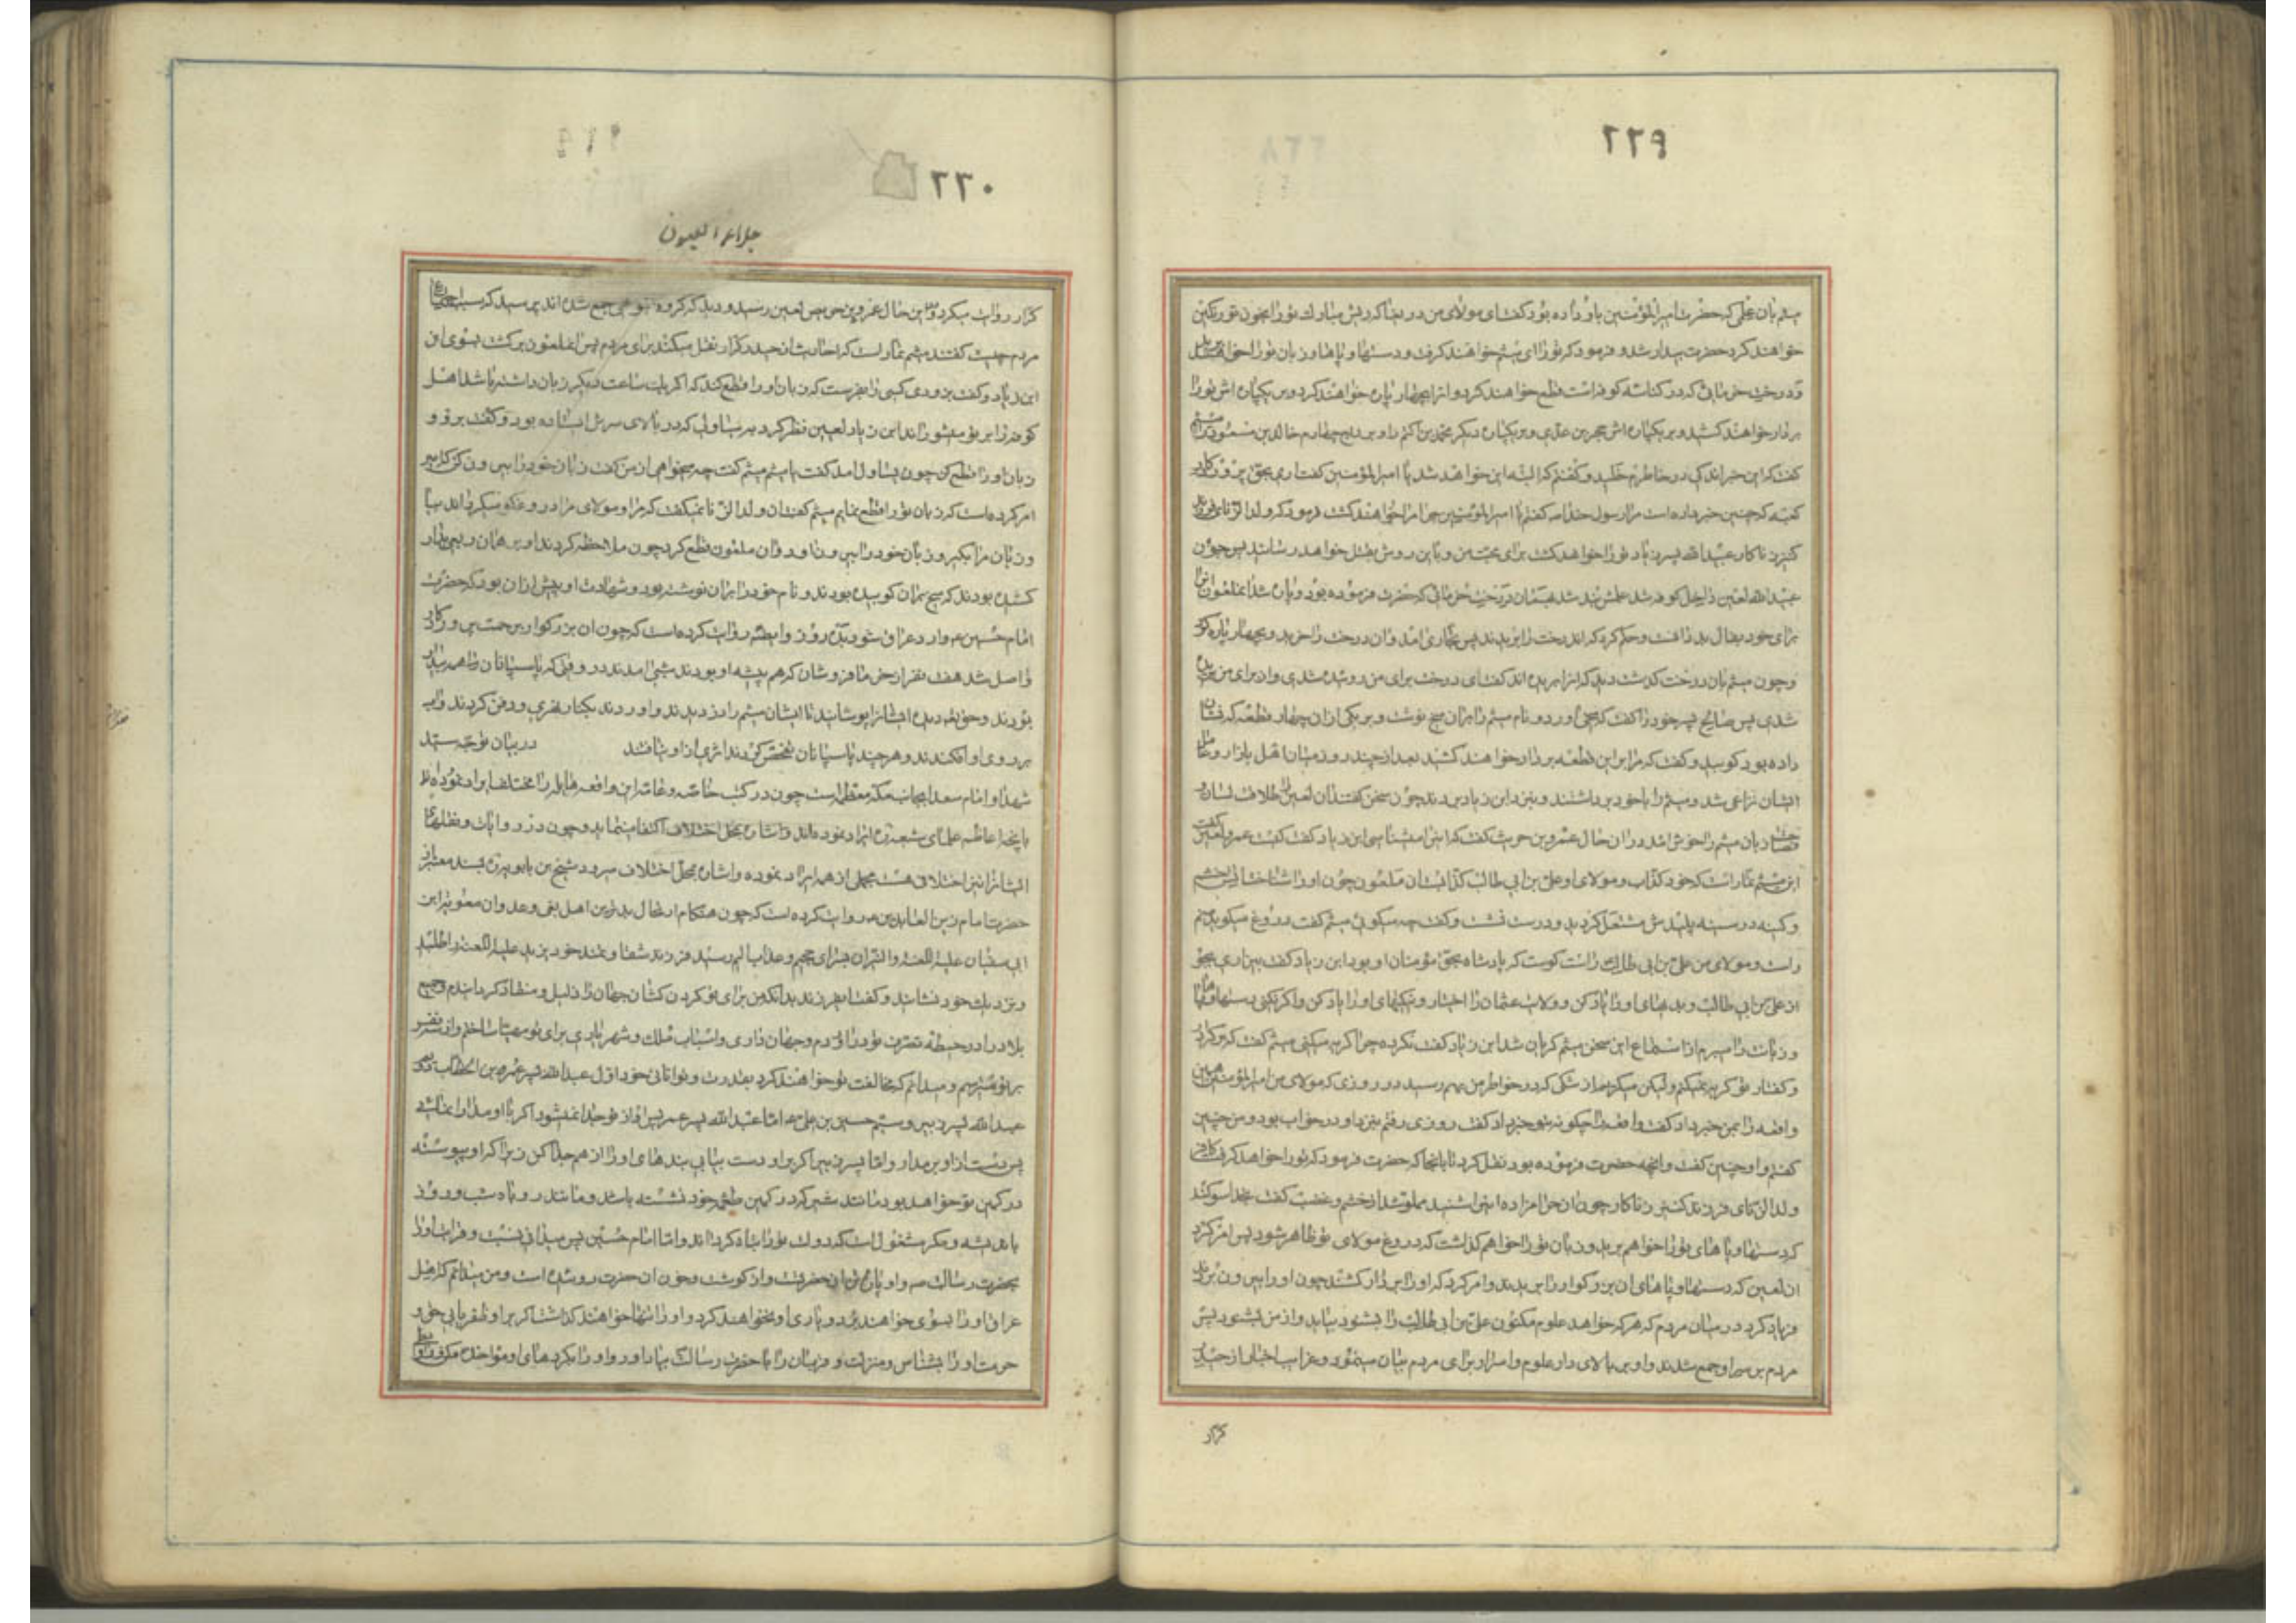 ۲۲۹
میثم بان علی که حضرت امیرالمؤمنین باو داده بود گفت ای مولای من در اینجا که ریش مبارک تو را بخون تو رنگین
خواهند کرد حضرت بیدار شد و فرمود که تو را ای میثم خواهند گرفت و دستها و پاها و زبان تو را خواهند
و درخت خرمائی که در کناسه کوفه است قطع خواهند کرد و انرا چهار پاره خواهند کرد و بر یکپاره اش تو را
بردار خواهند کشید و بر یکپاره اش حجر بن عدی و بر یکپاره دیگر محمد بن اکثم را و بر پاره چهارم خالد بن مسعود را
گفت که این خبر اندکی در خاطرم خلید و گفتم که البته این خواهد شد یا امیرالمؤمنین گفت اری بحق پروردگار
کعبه که چنین خبر داده است مرا رسول خدا ص گفتم یا امیرالمؤمنین چرا مرا خواهند کشت فرمود که ولد الزنای فرزند
کنیز زناکار عبید الله پسر زیاد تو را خواهد کشت برای محبت من و باین روش بقتل خواهد رسانید پس چون
عبید الله لعین داخل کوفه شد علمش بند شد بهمان درخت خرمائی که حضرت فرموده بود و پاره شد انملعون انرا
برای خود بفال بد دانست و حکم کرد که اندرخت را بریدند پس نجاری امد و ان درخت را خرید و بچهار پاره کرد
و چون میثم بان درخت گذشت دید که انرا بریده اند گفت ای درخت برای من روئیده شدی و از برای من بریده
شدی پس صالح پسر خود را گفت که میخی اورد و نام میثم را بران میخ نوشت و بر یکی از ان چهار قطعه که نشان
داده بود کوبید و گفت که مرا بر این قطعه بردار خواهند کشید بعد از چند روز میان اهل بازار و عامل
ایشان نزاعی شد و میثم را با خود برداشتند و بنزد ابن زیاد بردند چون سخن گفت ان لعین را طلاقت لسان و
فصاحت زبان میثم را خوش امد در ان حال عمرو بن حریث گفت که این را میشناسی ابن زیاد گفت کیست عمرو لعین گفت
این میثم تمار است که خود کذاب و مولای او علی بن ابی طالب کذابست ان ملعون چون او را شناخت اتش خشم
و کینه در سینه پلیدش مشتعل گردید و درست نشست و گفت چه میگوئی میثم گفت دروغ میگوید منم
راست و مولای من علی بن ابی طالب راست گوست که پادشاه بحق مؤمنان او بود ابن زیاد گفت بیزاری بجو
از علی بن ابی طالب و بدیهای او را یاد کن و ولایت عثمان را اختیار و نیکیهای او را یاد کن و اگر نکنی دستها و پاها
و زبانت را میبرم از استماع این سخن میثم گریان شد ابن زیاد گفت نکرده چرا گریه میکنی میثم گفت که بر کردار
و گفتار تو گریه نمیکنم ولیکن میگریم از شکی که در خاطر من بهم رسید در روزی که مولای من امیرالمؤمنین همین
واقعه را بمن خبر داد گفت واقعه را چگونه بتو خبر داد گفت روزی رفتم بنزد او در خواب بود و من چنین
گفتم و او چنین گفت و انچه حضرت فرموده بود نقل کرد تا بانجا که حضرت فرمود که تو را خواهد گرفت کافر
ولد الزنای فرزند کنیز زناکار چون ان حرامزاده این را شنید مملو شد از خشم و غضب گفت بخدا سوگند
که دستها و پاهای تو را خواهم برید و زبان تو را خواهم گذاشت که دروغ مولای تو ظاهر شود پس امر کرد
ان لعین که دستها و پاهای ان بزرگوار را بریدند و امر کرد که او را بردار کشند چون او را بیرون بردند
فریاد کرد در میان مردم که هر که خواهد علوم مکنون علی بن ابی طالب را بشنود بیاید و از من بشنود پس
مردم بر سر او جمع شدند و او بر بالای دار علوم و اسرار برای مردم بیان مینمود و غرایب اخبار از حیدر
کرار
۲۲۰
جلاء العیون
کرار روایت میکرد در این حال عمرو بن حریث لعین رسید و دید که گروه انبوهی جمع شده اند پرسید که سبب اجتماع
مردم چیست گفتند میثم تمار است که احادیث از حیدر کرار نقل میکند برای مردم پس انملعون برگشت بسوی ابن
ابن زیاد و گفت بزودی کسی را بفرست که زبان او را قطع کند که اگر یک ساعت دیگر زبان داشته باشد اهل
کوفه را بر تو میشوراند ابن زیاد لعین نظر کرد به یساولی که در بالای سرش ایستاده بود و گفت برو و
زبان او را قطع کن چون یساول امد گفت یا میثم میثم گفت چه میخواهی از من گفت زبان خود را بیرون کن که امیر
امر کرده است که زبان تو را قطع نمایم میثم گفت ان ولد الزنا نمیگفت که مرا و مولای مرا دروغگو میگرداند بیا
و زبان مرا بگیر و زبان خود را بیرون اورد و ان ملعون قطع کرد چون ملاحظه کردند او بر همان ربعی بدار
کشیده بودند که میخ بران کوبیده بودند و نام خود را بران نوشته بود و شهادت او پیش از ان بود که حضرت
امام حسین ع وارد عراق شود بده روز و ایضا روایت کرده است که چون ان بزرگوار برحمت پروردگار
واصل شد هفت نفر از خرما فروشان که هم پیشه او بودند شبی امدند در وقتی که پاسبانان همه بیدار
بودند و حق تعالی دیده ایشانرا پوشانید تا ایشان میثم را دزدیدند و اوردند بکنار نهری و دفن کردند و اب
بر روی او افکندند و هر چند پاسبانان تفحص کردند اثری از او نیافتند در بیان توجه سید
شهدا و امام سعدا بجانب مکه معظمه است چون در کتب خاصه و عامه این واقعه هایله را مختلف ایراد نموده اند
بانچه اعاظم علمای شیعه ره ایراد نموده اند و اشاره بمحل اختلاف اکتفا مینماید و چون در روایات و نقلهای
ایشان نیز اختلاف هست مجملی از همه ایراد نموده و اشاره بمحل اختلاف میرود شیخ بن بابویه ره بسند معتبر از
حضرت امام زین العابدین ع روایت کرده است که چون هنگام ارتحال بدترین اهل بغی و عدوان معویه ابن
ابی سفیان علیه اللعنة والنیران بسرای جحیم و عذاب الیم رسید فرزند شقاوتمند خود یزید علیه اللعنة را طلبید
و نزدیک خود نشانید و گفت ایفرزند بدانکه من برای تو گردن کشان جهان را ذلیل و منقاد گردانیدم و جمیع
بلاد را در حیطه تصرف تو در اوردم و جهان داری و اسباب ملک و شهریاری برای تو مهیا ساختم و از سه نفر
بر تو میترسم و میدانم که مخالفت تو خواهند کرد بقدرت و توانائی خود اول عبد الله پسر عمر بن الخطاب دوم
عبد الله پسر زبیر و سیم حسین بن علی ع اما عبد الله پسر عمر پس او از تو جدا نمیشود اگر با او مدارا نمائی
پس دست از او بر مدار و اما پسر زبیر اگر بر او دست بیابی بندهای او را از هم جدا کن زیرا که او پیوسته
در کمین تو خواهد بود مانند شیر که در کمین طعمه خود نشسته باشد و مانند روباه شب و روز
باندیشه و مکر مشغول است که دولت تو را تباه گرداند و اما امام حسین پس میدانی نسبت و قرابت او را
بحضرت رسالت ص و او پاره تن ان حضرت و از گوشت و خون ان حضرت روئیده است و من میدانم که اهل
عراق او را بسوی خواهند برد و یاری او نخواهند کرد و او را تنها خواهند گذاشت اگر بر او ظفر یابی حق و
حرمت او را بشناس و منزلت و قربت ان را با حضرت رسالت بیاد اور و او را بکردهای او مواخذه مکن و روابط